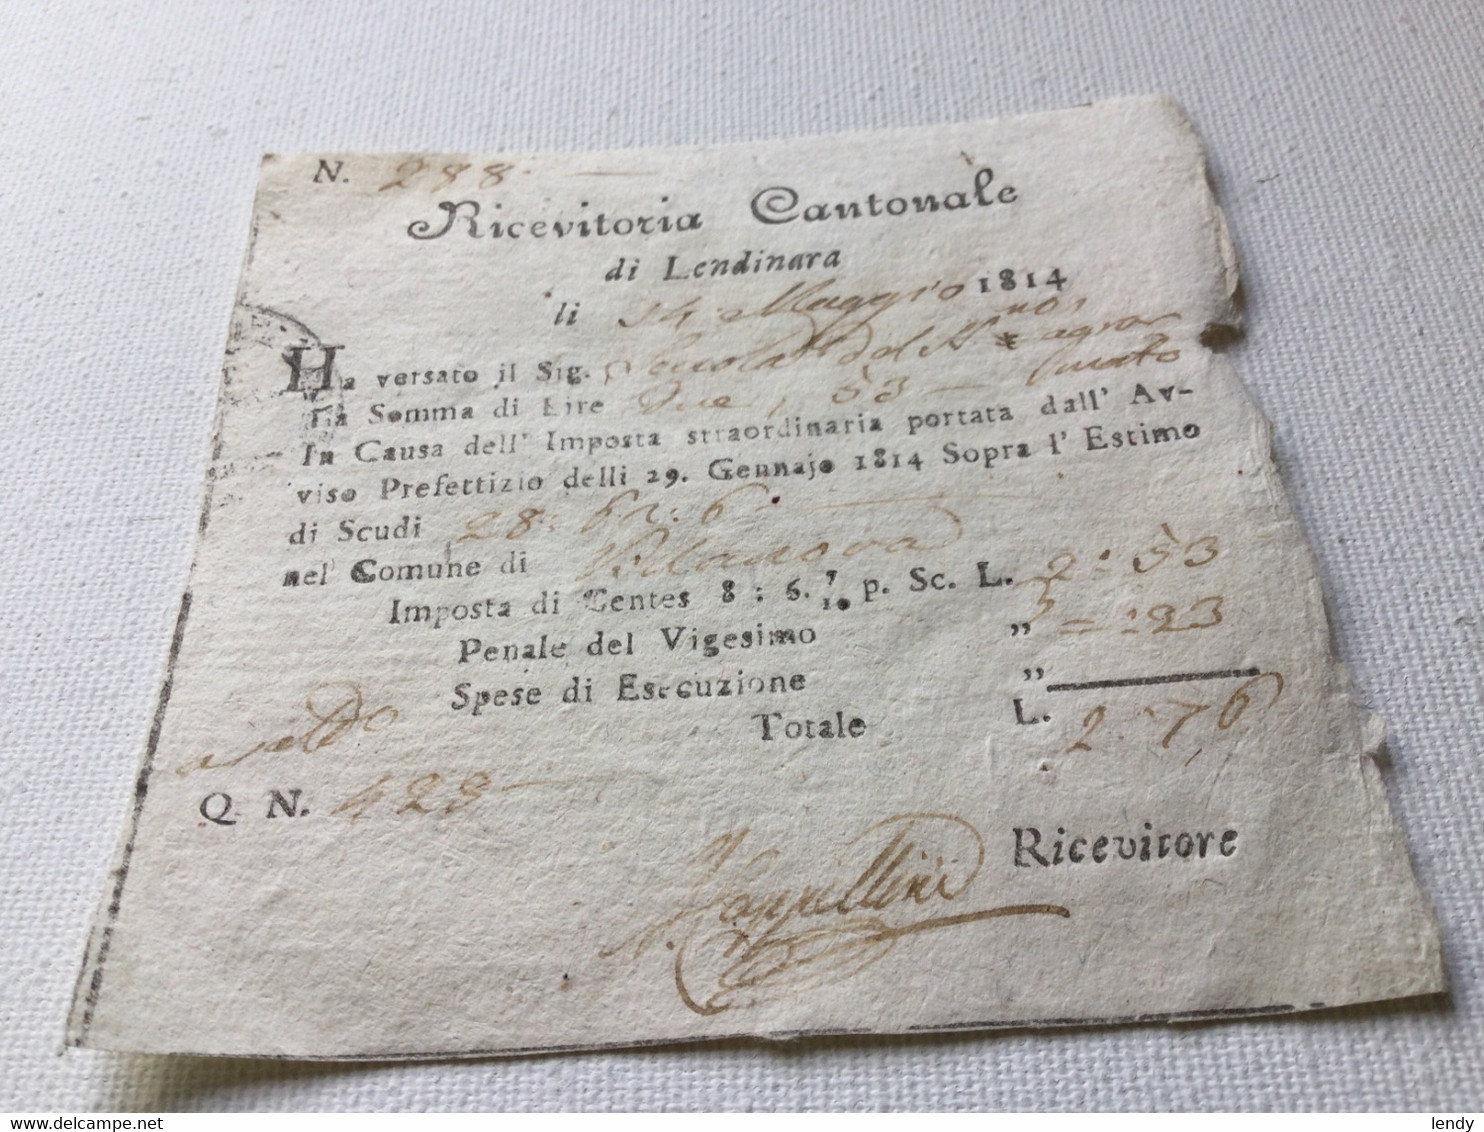 N. 288.
Ricevitoria Cantonale
di Lendinara
li 14 Maggio 1814
Ha versato il Sig. Scuola del
La Somma di Lire Due, 53
In Causa dell' Imposta straordinaria portata dall' Av-
viso Prefettizio delli 29. Gennajo 1814 Sopra l' Estimo
di Scudi 28: 62: 6
nel Comune di Villanova
Imposta di Centes 8 : 6. 7/10 p. Sc. L. 2 : 53
Penale del Vigesimo " = : 23
Spese di Esecuzione "
Totale L. 2 : 76
a saldo
Q. N. 423
Ricevitore
Cappellini
delcampe.net
lendy